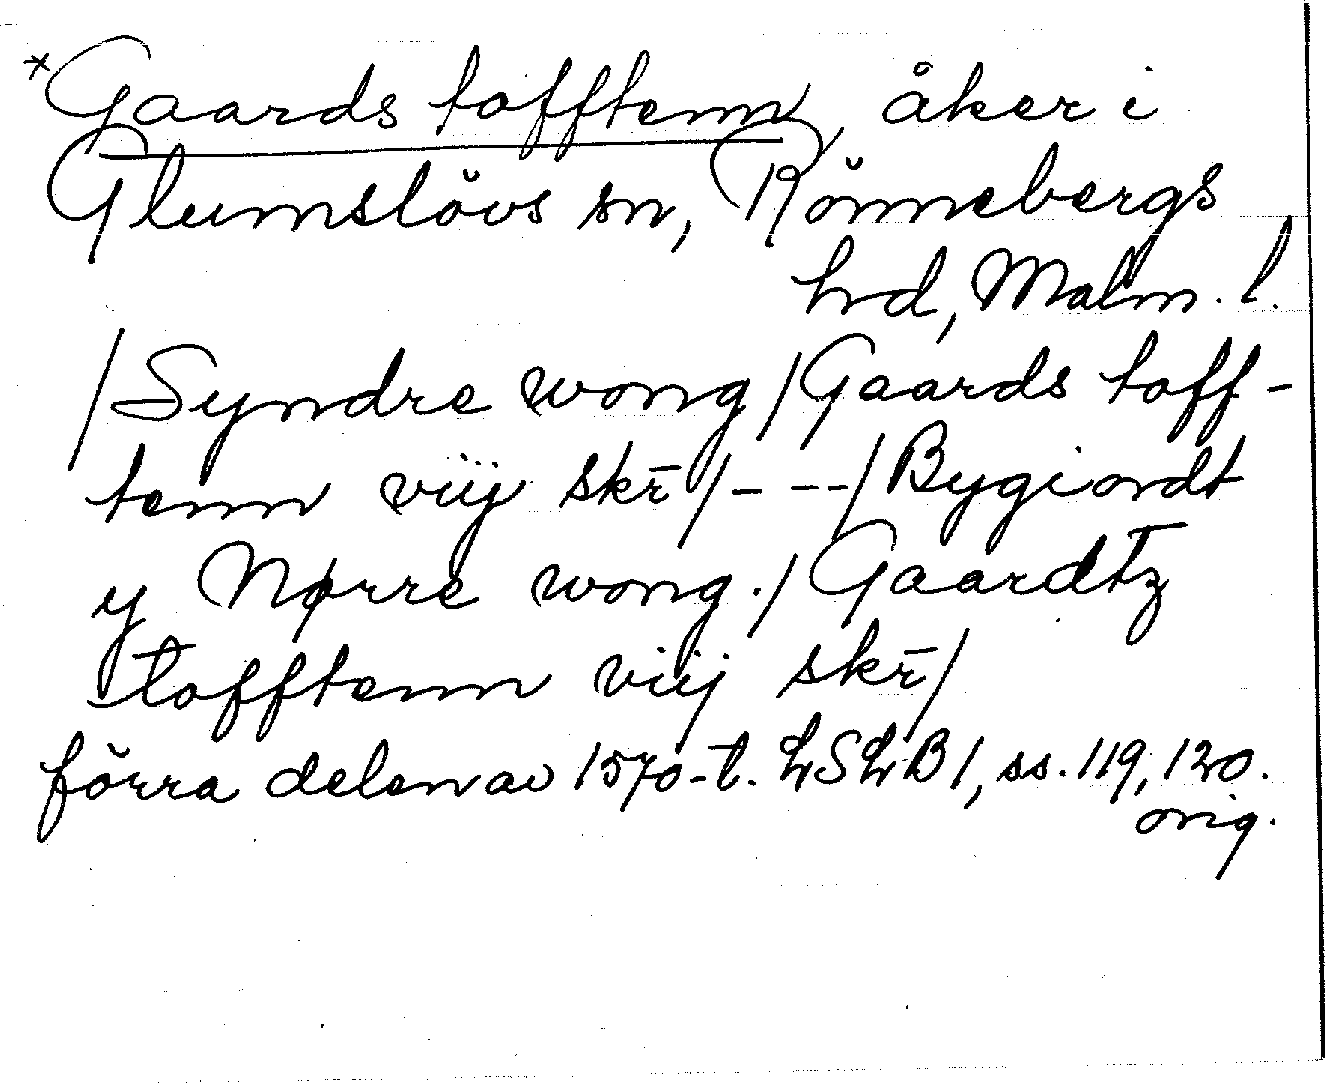 *Gaards tofftenn, åker i
Glumslövs sn, Rönnebergs
hrd, Malm. l.
/Syndre wong/Gaards toff-
tenn viij skr̄/- --/Bygiordt
y Nørre wong./Gaardtz
tofftenn viij skr̄/
förra delen av 1570-t. LSLB 1, ss. 119, 120.
orig.